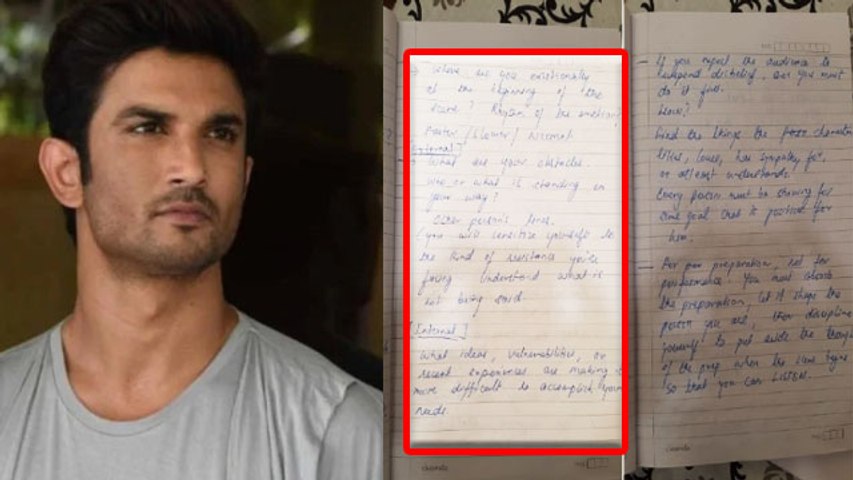 Where are you emotionally
at the beginning of the
scene? Rhythm of the emotion?
Faster / Slower / Normal
[External]
What are your obstacles.
Who or what is standing in
your way?
Other person's lines.
(you will sensitize yourself to
the kind of resistance you're
facing understand what is
not being said.
[Internal]
What ideas, vulnerabilities, or
recent experiences are making it
more difficult to accomplish your
needs.
classmate
If you expect the audience to
suspend disbelief, you must
do it first.
How?
Find the things the character
likes, loves, has sympathy for,
or at least understands.
Every person must be striving for
some goal that is positive for
him.
preparation, not for
performance. You must absorb
the preparation, let it shape the
person you are, then discipline
yourself to put aside the thought
of the prep when the scene begins
so that you can LISTEN.
classmate